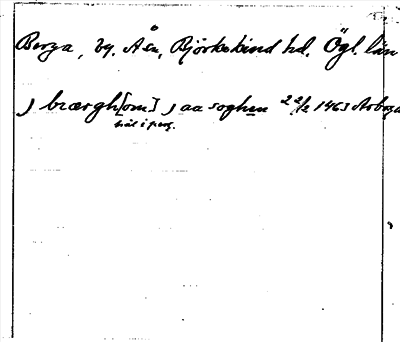 Berga, by. Å sn, Björkekind hd. Ögl. län
j bærgh[om] j aa soghen 22/2 1463 Arboga
hål i perg.